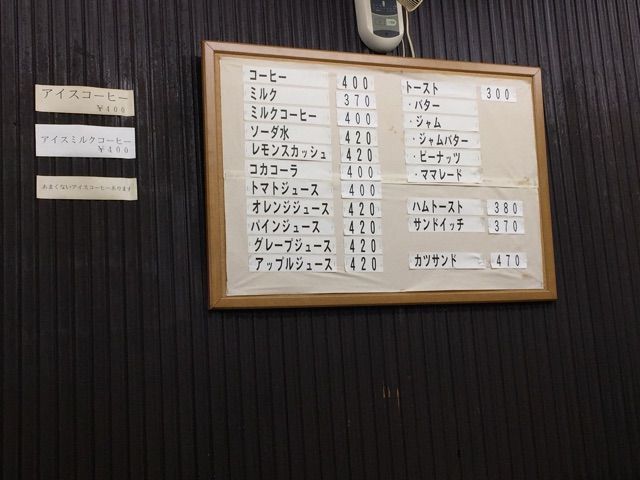 アイスコーヒー
￥400
アイスミルクコーヒー
￥400
あまくないアイスコーヒーあります
コーヒー 400
ミルク 370
ミルクコーヒー 400
ソーダ水 420
レモンスカッシュ 420
コカコーラ 400
トマトジュース 400
オレンジジュース 420
パインジュース 420
グレープジュース 420
アップルジュース 420
トースト 300
・バター
・ジャム
・ジャムバター
・ピーナッツ
・ママレード
ハムトースト 380
サンドイッチ 370
カツサンド 470